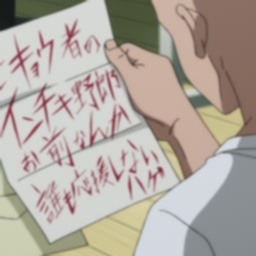 ヒキョウ者の
インチキ野郎
お前なんか
誰も応援しない
ハゲ